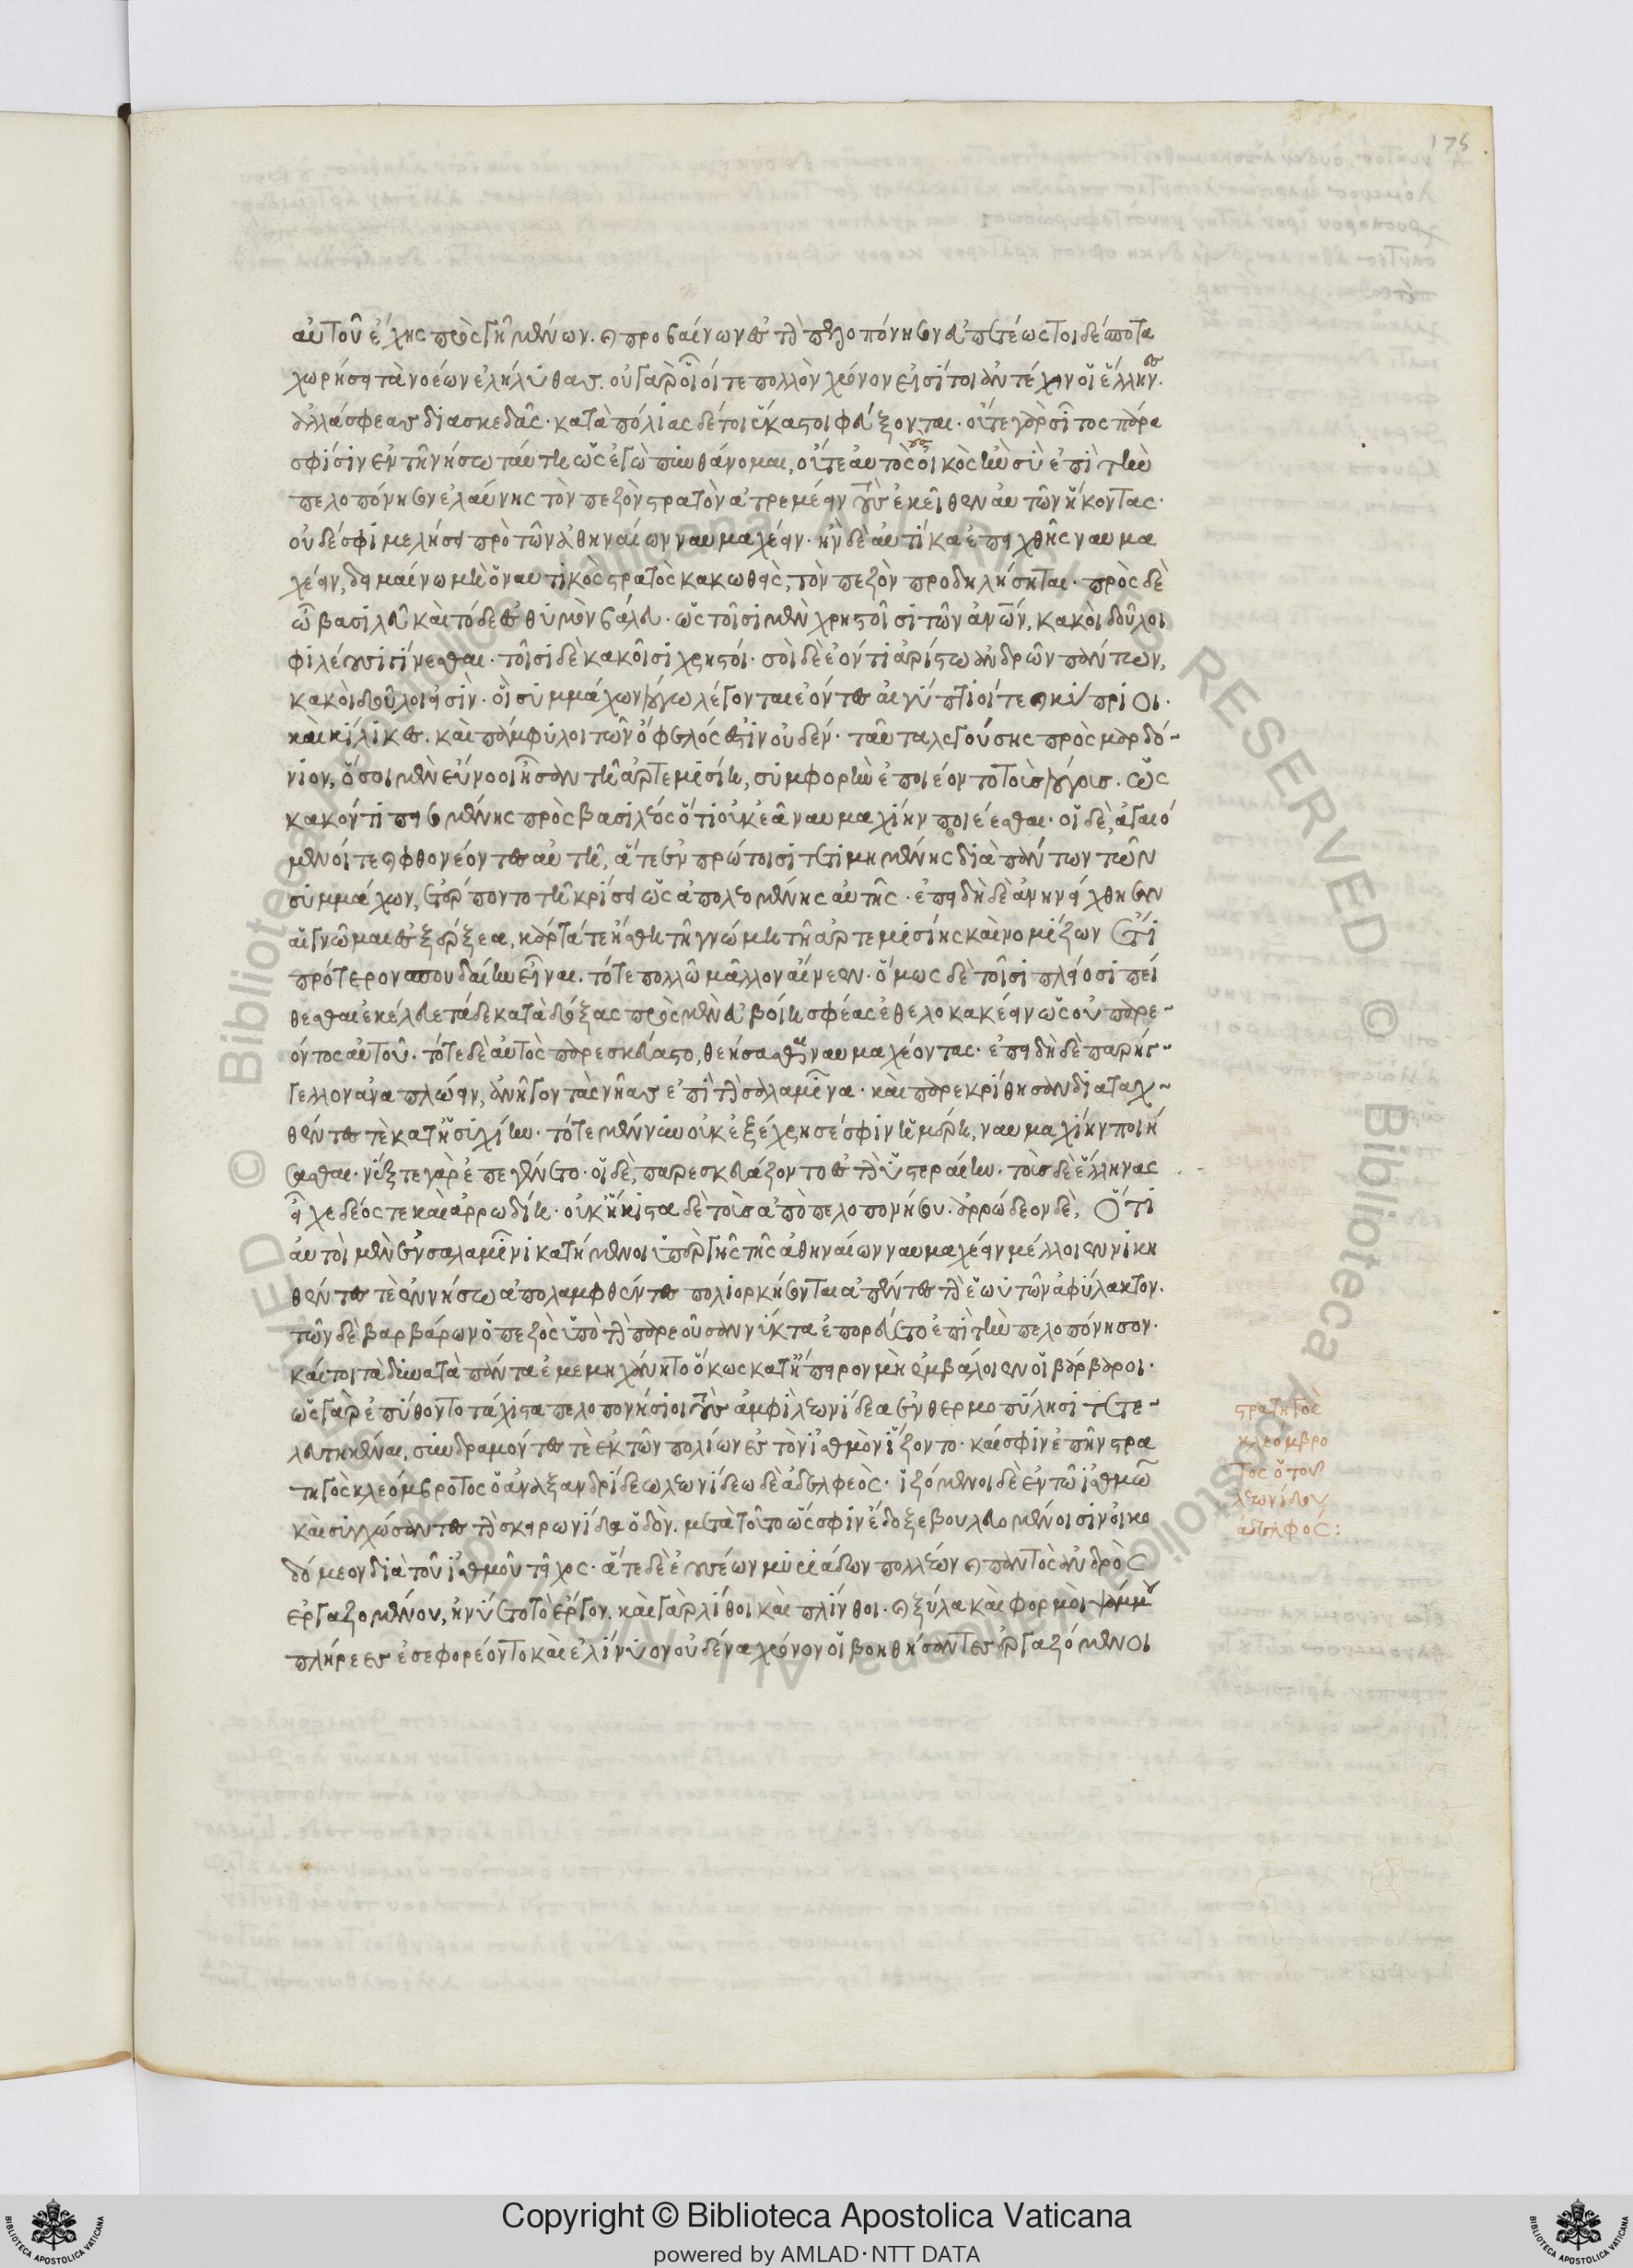 175
αὐτοῦ ἔχης πρὸς γῆ μένων. ἢ προβαίνων ἐς τὴν πελοπόνησον εὐπετέως τοι δέσποτα
χωρήσει τὰ νοέων ἐλήλυθας. οὐ γὰρ οἷοί τε πολλὸν χρόνον εἰσί τοι ἀντέχειν οἱ ἕλληνες.
ἀλλά σφεας διασκεδᾷς. κατὰ πόλιας δέ τοι ἕκαστοι φεύξονται. οὔτε γὰρ σῖτος πάρα
σφίσιν ἐν τῇ νήσω ταύτη ὡς ἐγὼ πυνθάνομαι, οὔτε αὐτοὺς οἰκὸς ἢν σὺ ἐπὶ τὴν
πελοπόνησον ἐλαύνης τὸν πεζὸν στρατὸν ἀτρεμέειν τοὺς ἐκεῖθεν αὐτῶν ἥκοντας.
οὐδέ σφι μελήσει πρὸ τῶν ἀθηναίων ναυμαχέειν. ἢν δὲ αὐτίκα ἐπειχθῇς ναυμα
χέειν, δειμαίνω μὴ ὁ ναυτικὸς στρατὸς κακωθεὶς, τὸν πεζὸν προδηλήσηται. πρὸς δὲ
ὦ βασιλεῦ καὶ τόδε ἐς θυμὸν βάλευ. ὡς τοῖσι μὲν χρηστοῖσι τῶν ἀνῶν, κακοὶ δοῦλοι
φιλέουσι γίνεσθαι. τοῖσι δὲ κακοῖσι χρηστοί. σοὶ δὲ ἐόντι ἀρίστω ἀνδρῶν πάντων,
κακοὶ δοῦλοι εἰσὶν. οἳ συμμάχων λόγω λέγονται ἐόντες αἰγύπτιοί τε ἢ κύπριοι.
καὶ κίλικες. καὶ πάμφυλοι τῶν ὄφελός ἐστιν οὐδέν. ταῦτα λεγούσης πρὸς μαρδό
νιον, ὅσοι μὲν εὔνοοι ἦσαν τῆ ἀρτεμισίη, συμφορὴν ἐποιέοντο τοὺς λόγους. ὡς
κακόν τι πεισομένης πρὸς βασιλέος ὅτι οὐκ ἐᾷ ναυμαχίην ποιέεσθαι. οἱ δὲ, ἀγαιό
μενοί τε ἢ φθονέοντες αὐτῆ, ἅτε ἐν πρώτοισι τετιμημένης διὰ πάντων τῶν
συμμάχων, ἐτέρποντο τῆ κρίσει ὡς ἀπολεομένης αὐτῆς. ἐπειδὴ δὲ ἀνηνείχθησαν
αἱ γνῶμαι ἐς ξέρξεα, κάρτα τε ἥσθη τῆ γνώμη τῆ ἀρτεμισίης καὶ νομίζων ἔτι
πρότερον σπουδαίην εἶναι. τότε πολλῶ μᾶλλον αἴνεεν. ὅμως δὲ τοῖσι πλέοσι πεί
θεσθαι ἐκέλευε τάδε καταδόξας πρὸς μὲν εὐβοίη σφέας ἐθελοκακέειν ὡς οὐ παρε
όντος αὐτοῦ. τότε δὲ αὐτὸς παρεσκεύαστο, θεήσασθαι ναυμαχέοντας. ἐπειδὴ δὲ παρήγ
γελλον ἀναπλώειν, ἀνῆγον τὰς νῆας ἐπὶ τὴν σαλαμῖνα. καὶ παρεκρίθησαν διαταχ
θέντες κατ' ἡσυχίην. τότε μέν νυν οὐκ ἐξέχρησέ σφιν ἡ ἡμέρη, ναυμαχίην ποιή
σασθαι. νύξ τε γὰρ ἐπεγένετο. οἱ δὲ, παρεσκευάζοντο ἐς τὴν ὑστεραίην. τοὺς δὲ ἕλληνας
εἶχε δέος τε καὶ ἀρρωδίη. οὐκ ἥκιστα δὲ τοὺς ἀπὸ πελοπονήσου. ἀρρώδεον δὲ, ὅτι
αὐτοὶ μὲν ἐν σαλαμῖνι κατήμενοι ὑπὲρ γῆς τῆς ἀθηναίων ναυμαχέειν μέλλοιεν νικη
θέντες τε ἐν νήσω ἀπολαμφθέντες πολιορκήσονται ἀπέντες τὴν ἑωυτῶν ἀφύλακτον.
τῶν δὲ βαρβάρων ὁ πεζὸς ὑπὸ τὴν παρεοῦσαν νύκτα ἐπορεύετο ἐπὶ τὴν πελοπόνησον.
καίτοι τὰ δυνατὰ πάντα ἐμεμηχάνητο ὅκως κατ' ἤπειρον μὴ ἐμβάλοιεν οἱ βάρβαροι.
ὡς γὰρ ἐπύθοντο τάχιστα πελοπονήσιοι τοὺς ἀμφὶ λεωνίδεα ἐν θερμοπύλησι τετε
λευτηκέναι, συνδραμόντες ἐκ τῶν πολίων ἐς τὸν ἰσθμὸν ἵζοντο. καί σφιν ἐπῆν στρα
τηγὸς κλεόμβροτος ὁ ἀναξανδρίδεω λεωνίδεω δὲ ἀδελφεὸς. ἱζόμενοι δὲ ἐν τῶ ἰσθμῶ
καὶ συγχώσαντες τὴν σκειρωνίδα ὁδὸν. μετὰ τοῦτο ὥς σφιν ἔδοξε βουλευομένοισιν οἰκο
δόμεον διὰ τοῦ ἰσθμοῦ τεῖχος. ἅτε δὲ ἐουσέων μυριάδων πολλέων ἢ παντὸς ἀνδρὸς
ἐργαζομένου, ἠνύετο τὸ ἔργον. καὶ γὰρ λίθοι καὶ πλίνθοι. ἢ ξύλα καὶ φορμοὶ ψάμμου
πλήρεες ἐσεφορέοντο καὶ ἐλίνυον οὐδένα χρόνον οἱ βοηθήσαντες ἐργαζόμενοι
στρατηγὸς
κλεόμβρο
τος ὁ τοῦ
λεωνίδου
ἀδελφός:
Copyright © Biblioteca Apostolica Vaticana
powered by AMLAD·NTT DATA